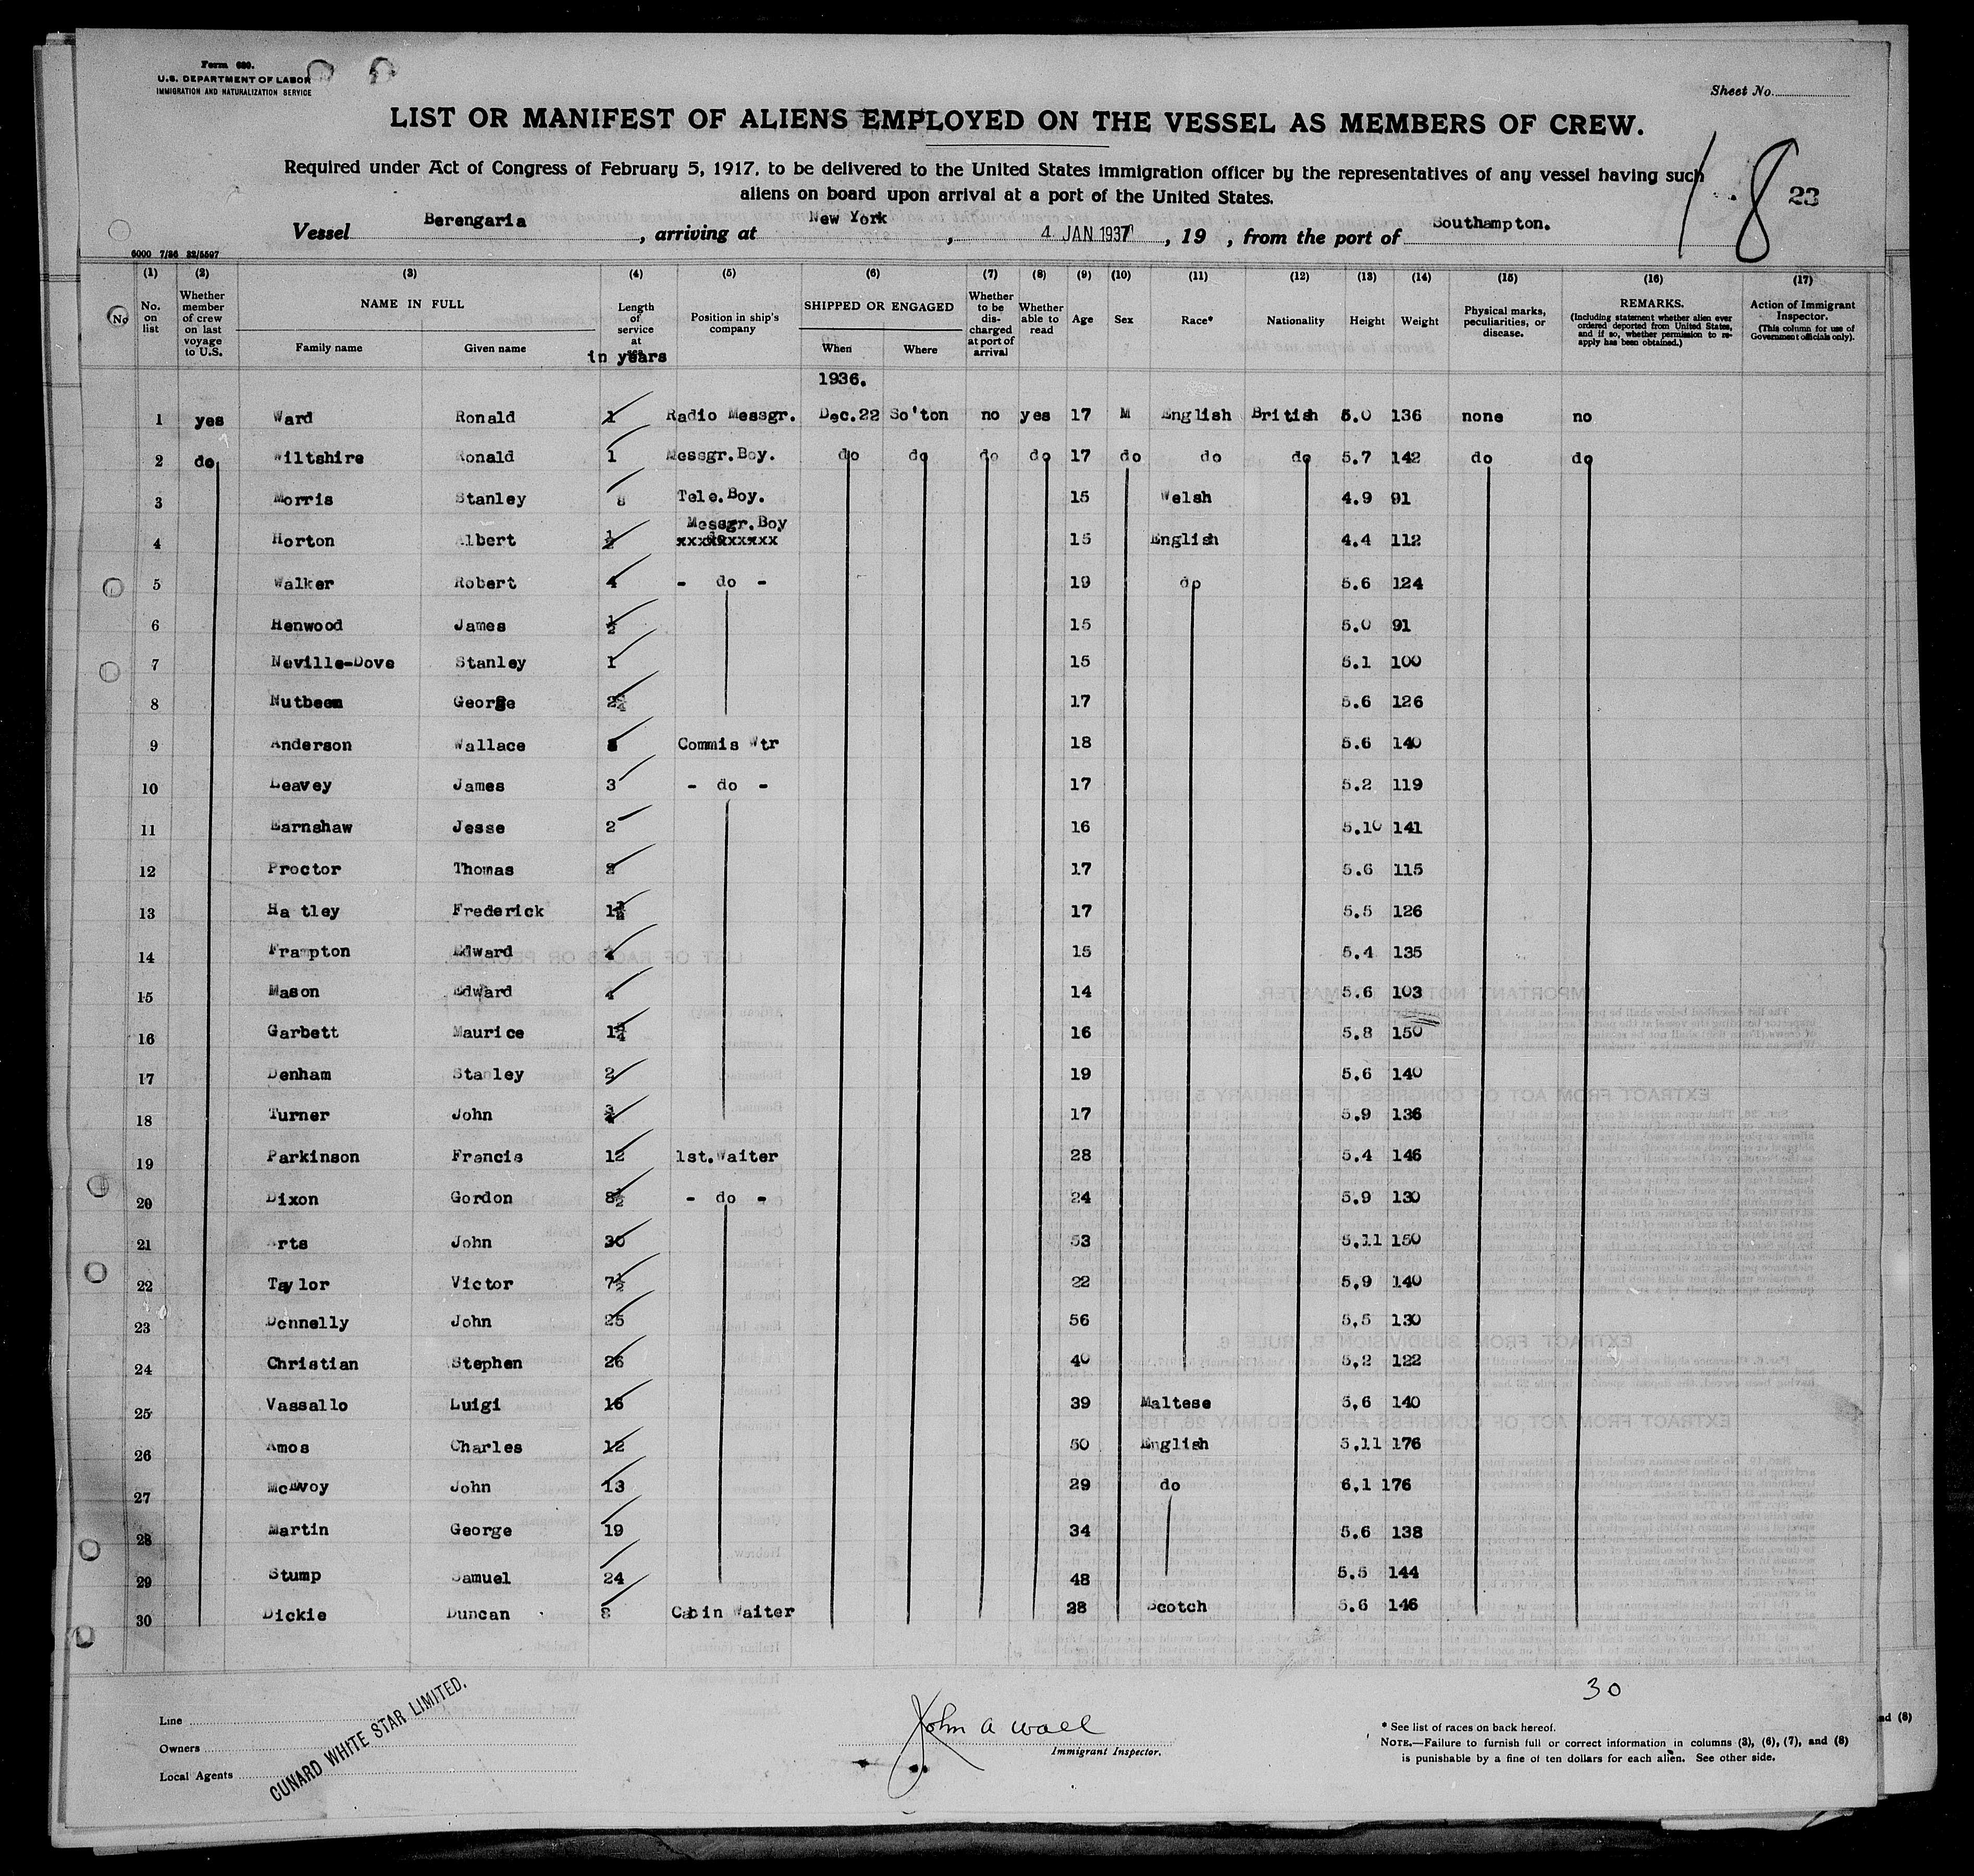 Form 680.
U.S. DEPARTMENT OF LABOR
IMMIGRATION AND NATURALIZATION SERVICE
Sheet No.
LIST OR MANIFEST OF ALIENS EMPLOYED ON THE VESSEL AS MEMBERS OF CREW.
Required under Act of Congress of February 5, 1917, to be delivered to the United States immigration officer by the representatives of any vessel having such
aliens on board upon arrival at a port of the United States.
18 23
Vessel Berengaria, arriving at New York, 4 JAN 1937, 19 , from the port of Southampton.
6000 7/36 22/5597
(1) (2) (3) (4) (5) (6) (7) (8) (9) (10) (11) (12) (13) (14) (15) (16) (17)
No
No. on list
Whether member of crew on last voyage to U.S.
NAME IN FULL
Family name Given name
Length of service at
in years
Position in ship's company
SHIPPED OR ENGAGED
When Where
Whether to be discharged at port of arrival
Whether able to read
Age Sex Race* Nationality Height Weight
Physical marks, peculiarities, or disease.
REMARKS.
(Including statement whether alien ever ordered deported from United States, and if so, whether permission to reapply has been obtained.)
Action of Immigrant Inspector.
(This column for use of Government officials only).
1936.
1 yes Ward Ronald 1 Radio Messgr. Dec.22 So'ton no yes 17 M English British 5.0 136 none no
2 do Wiltshire Ronald 1 Messgr.Boy. do do do do 17 do do do 5.7 142 do do
3 Morris Stanley Tele.Boy. 15 Welsh 4.9 91
Messgr.Boy
4 Horton Albert ½ xxxxxxxxxx 15 English 4.4 112
5 Walker Robert 4 - do - 19 do 5.6 124
6 Henwood James ½ 15 5.0 91
7 Neville-Dove Stanley 1 15 5.1 100
8 Nutbeem George 17 5.6 126
9 Anderson Wallace Commis Wtr 18 5.6 140
10 Leavey James 3 - do - 17 5.2 119
11 Earnshaw Jesse 2 16 5.10 141
12 Proctor Thomas 17 5.6 115
13 Ha tley Frederick 1½ 17 5.5 126
14 Frampton Edward 15 5.4 135
15 Mason Edward 14 5.6 103
16 Garbett Maurice 16 5.8 150
17 Denham Stanley 2 19 5.6 140
18 Turner John ¾ 17 5.9 136
19 Parkinson Francis 12 1st.Waiter 28 5.4 146
20 Dixon Gordon 8½ - do - 24 5.9 130
21 rts John 30 53 5,11 150
22 Taylor Victor 7½ 22 5,9 140
23 Donnelly John 25 56 5,5 130
24 Christian Stephen 26 40 5,2 122
25 Vassallo Luigi 16 39 Maltese 5,6 140
26 Amos Charles 12 50 English 5,11 176
27 McEvoy John 13 29 do 6,1 176
28 Martin George 19 34 5.6 138
29 Stump Samuel 24 48 5.5 144
30 Dickie Duncan 8 Cabin Waiter 28 Scotch 5.6 146
30
Line
Owners
Local Agents
CUNARD WHITE STAR LIMITED.
John A Wall
Immigrant Inspector.
* See list of races on back hereof.
NOTE.—Failure to furnish full or correct information in columns (3), (6), (7), and (8)
is punishable by a fine of ten dollars for each alien. See other side.
nd (8)